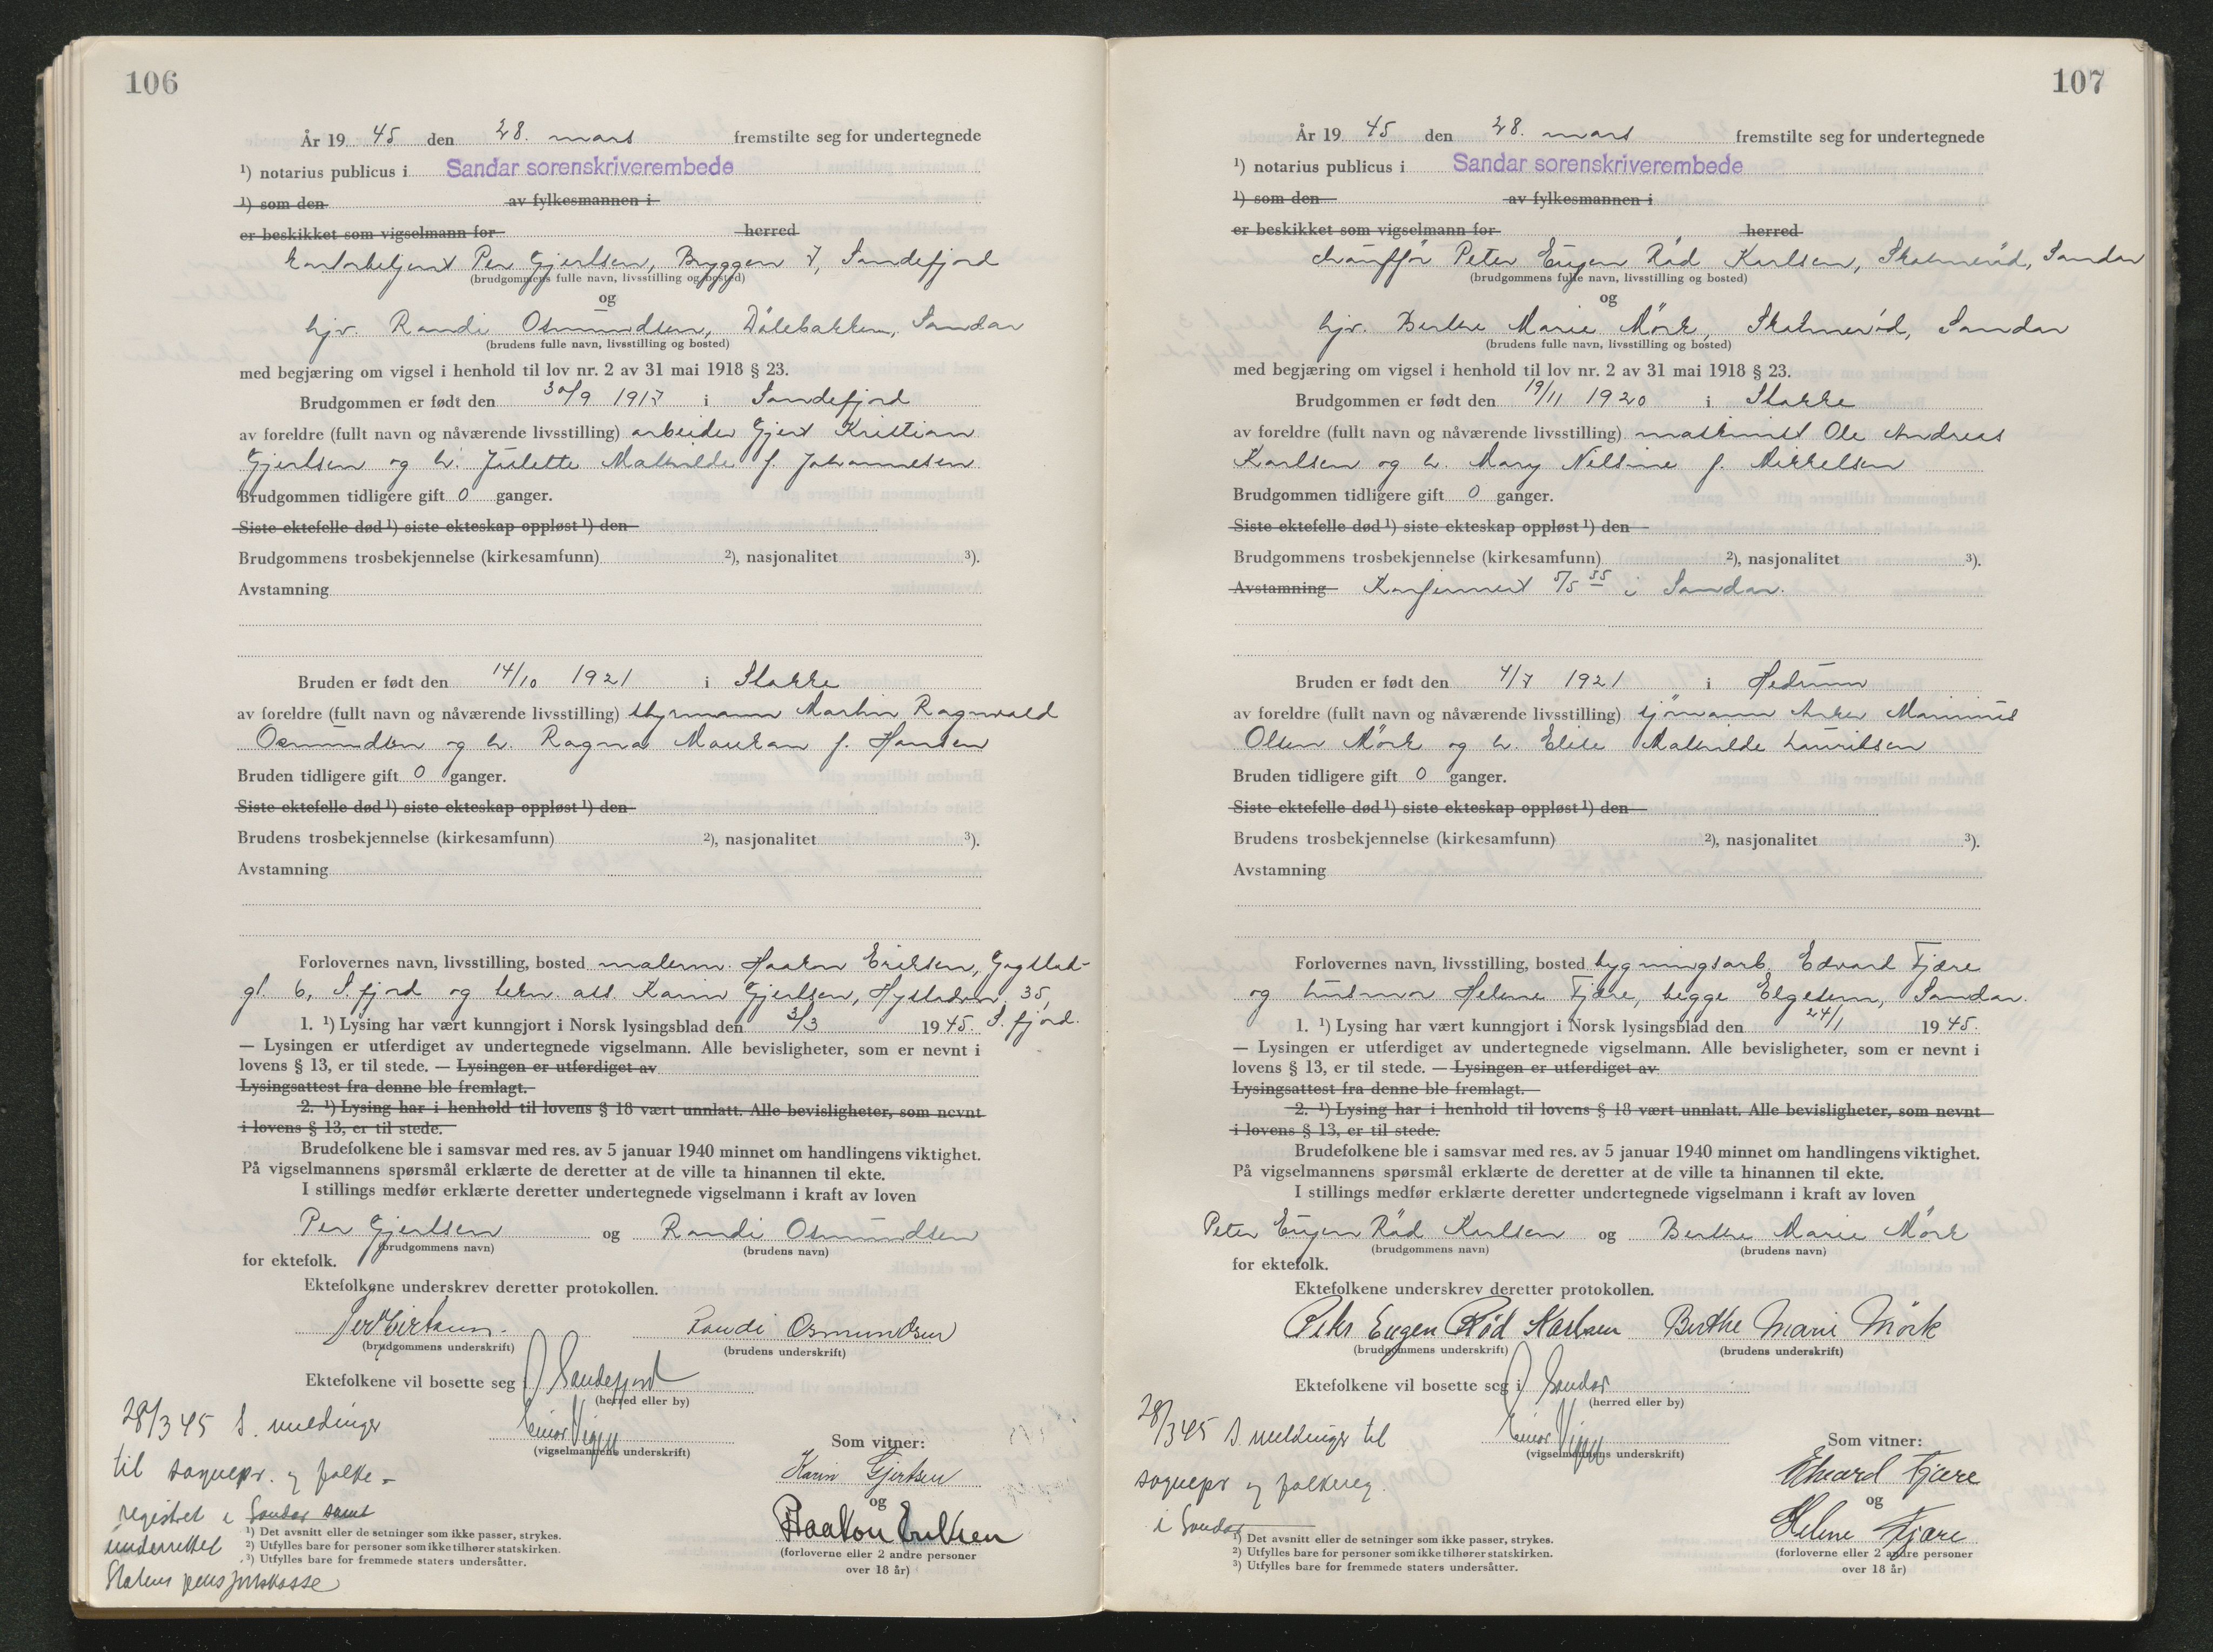 106
År 19 45 den 28. mars fremstilte seg for undertegnede
¹) notarius publicus i Sandar sorenskriverembede
¹) som den av fylkesmannen i
er beskikket som vigselmann for herred
Per Gjertsen, Bryggen 7, Sandefjord
(brudgommens fulle navn, livsstilling og bosted)
og
hjv. Randi Osmundsen, Dølebakken, Sandar
(brudens fulle navn, livsstilling og bosted)
med begjæring om vigsel i henhold til lov nr. 2 av 31 mai 1918 § 23.
Brudgommen er født den 30/9 1917 i Sandefjord
av foreldre (fullt navn og nåværende livsstilling) arbeider Gjert Kristian
Gjertsen og h. Julette Mathilde f. Johannesen
Brudgommen tidligere gift 0 ganger.
Siste ektefelle død ¹) siste ekteskap oppløst ¹) den
Brudgommens trosbekjennelse (kirkesamfunn) ²), nasjonalitet ³).
Avstamning
Bruden er født den 14/10 1921 i Stokke
av foreldre (fullt navn og nåværende livsstilling) styrmann Martin Ragnvald
Osmundsen og h. Ragna f. Hansen
Bruden tidligere gift 0 ganger.
Siste ektefelle død ¹) siste ekteskap oppløst ¹) den
Brudens trosbekjennelse (kirkesamfunn) ²), nasjonalitet ³).
Avstamning
Forlovernes navn, livsstilling, bosted malerm. Haakon Eriksen,
gt. 6, S.fjord og Karin Gjertsen, 35,
1. ¹) Lysing har vært kunngjort i Norsk lysingsblad den 3/3 1945. S.fjord.
— Lysingen er utferdiget av undertegnede vigselmann. Alle bevisligheter, som er nevnt i
lovens § 13, er til stede. — Lysingen er utferdiget av
Lysingsattest fra denne ble fremlagt.
2. ¹) Lysing har i henhold til lovens § 18 vært unnlatt. Alle bevisligheter, som nevnt
i lovens § 13, er til stede.
Brudefolkene ble i samsvar med res. av 5 januar 1940 minnet om handlingens viktighet.
På vigselmannens spørsmål erklærte de deretter at de ville ta hinannen til ekte.
I stillings medfør erklærte deretter undertegnede vigselmann i kraft av loven
Per Gjertsen og Randi Osmundsen
(brudgommens navn) (brudens navn)
for ektefolk.
Ektefolkene underskrev deretter protokollen.
Per Gjertsen. Randi Osmundsen
(brudgommens underskrift) (brudens underskrift)
Ektefolkene vil bosette seg i Sandefjord
(herred eller by)
28/3 45 S. meldinger
(vigselmannens underskrift)
Som vitner:
til sognepr. og folke-
Karin Gjertsen
og
registret i Sandar samt
Haakon Eriksen
underrettet
(forloverne eller 2 andre personer
over 18 år)
Statens pensjonskasse
¹) Det avsnitt eller de setninger som ikke passer, strykes.
²) Utfylles bare for personer som ikke tilhører statskirken.
³) Utfylles bare for fremmede staters undersåtter.
107
År 19 45 den 28. mars fremstilte seg for undertegnede
¹) notarius publicus i Sandar sorenskriverembede
¹) som den av fylkesmannen i
er beskikket som vigselmann for herred
chauffør Peter Eugen Rød Karlsen, Skolmerød, Sandar
(brudgommens fulle navn, livsstilling og bosted)
og
hjv. Berthe Marie Mørk, Skolmerød, Sandar
(brudens fulle navn, livsstilling og bosted)
med begjæring om vigsel i henhold til lov nr. 2 av 31 mai 1918 § 23.
Brudgommen er født den 19/11 1920 i Stokke
av foreldre (fullt navn og nåværende livsstilling) maskinist Ole Andreas
Karlsen og h. Mary Nilsine f. Mikkelsen
Brudgommen tidligere gift 0 ganger.
Siste ektefelle død ¹) siste ekteskap oppløst ¹) den
Brudgommens trosbekjennelse (kirkesamfunn) ²), nasjonalitet ³).
Avstamning Konfirmert 5/5 35 i Sandar.
Bruden er født den 4/7 1921 i Hedrum
av foreldre (fullt navn og nåværende livsstilling) sjömann Anker Marinius
Olsen Mørk og h. Elise Mathilde Lauritsen
Bruden tidligere gift 0 ganger.
Siste ektefelle død ¹) siste ekteskap oppløst ¹) den
Brudens trosbekjennelse (kirkesamfunn) ²), nasjonalitet ³).
Avstamning
Forlovernes navn, livsstilling, bosted bygningsarb. Edvard Fjære
og hustru Helene Fjære, begge Elgesem, Sandar.
1. ¹) Lysing har vært kunngjort i Norsk lysingsblad den 24/1 1945.
— Lysingen er utferdiget av undertegnede vigselmann. Alle bevisligheter, som er nevnt i
lovens § 13, er til stede. — Lysingen er utferdiget av
Lysingsattest fra denne ble fremlagt.
2. ¹) Lysing har i henhold til lovens § 18 vært unnlatt. Alle bevisligheter, som nevnt
i lovens § 13, er til stede.
Brudefolkene ble i samsvar med res. av 5 januar 1940 minnet om handlingens viktighet.
På vigselmannens spørsmål erklærte de deretter at de ville ta hinannen til ekte.
I stillings medfør erklærte deretter undertegnede vigselmann i kraft av loven
Peter Eugen Rød Karlsen og Berthe Marie Mørk
(brudgommens navn) (brudens navn)
for ektefolk.
Ektefolkene underskrev deretter protokollen.
Peter Eugen Rød Karlsen Berthe Marie Mörk
(brudgommens underskrift) (brudens underskrift)
Ektefolkene vil bosette seg i Sandar
(herred eller by)
28/3 45 S. meldinger til
(vigselmannens underskrift)
Som vitner:
sognepr og folkereg.
Edvard Fjære
og
i Sandar
Helene Fjære
(forloverne eller 2 andre personer
over 18 år)
¹) Det avsnitt eller de setninger som ikke passer, strykes.
²) Utfylles bare for personer som ikke tilhører statskirken.
³) Utfylles bare for fremmede staters undersåtter.